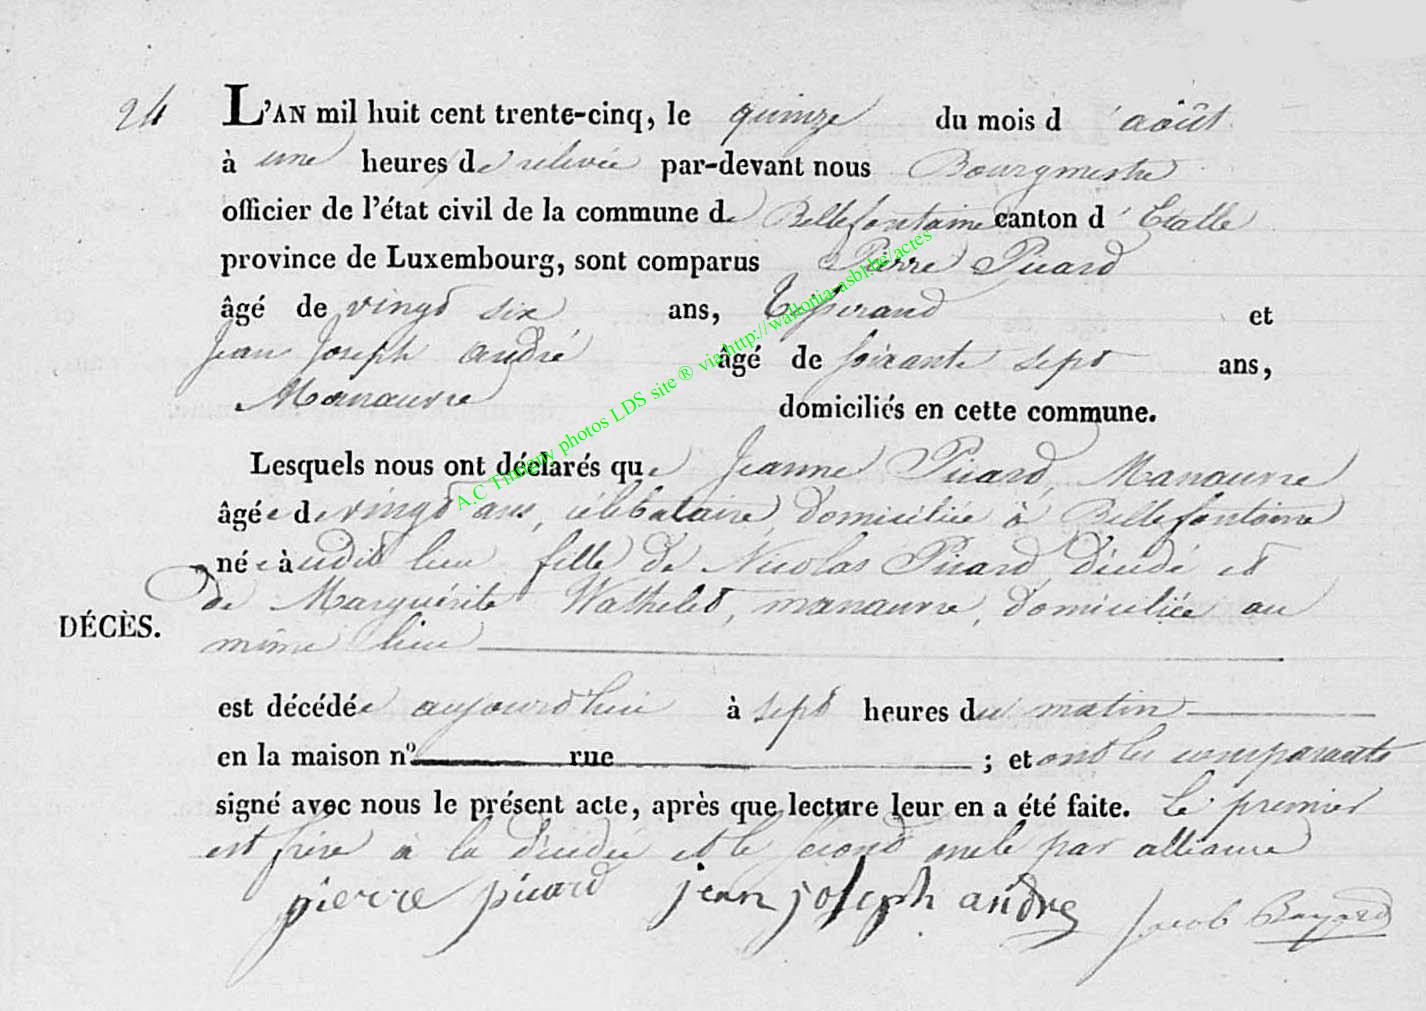 24 L'AN mil huit cent trente-cinq, le quinze du mois d'août
à une heures de relevée par-devant nous Bourgmestre
officier de l'état civil de la commune de Bellefontaine canton d'Etalle
province de Luxembourg, sont comparus Pierre Picard
âgé de vingt six ans, et
Jean Joseph andré âgé de soixante sept ans,
Manœuvre domiciliés en cette commune.
Lesquels nous ont déclarés que Jeanne Picard, Manœuvre
âgée de vingt ans, célibataire, domiciliée à Bellefontaine
née audit lieu fille de Nicolas Picard, décédé et
de Marguérite Wathelet, manœuvre, domiciliée au
DÉCÈS.
même lieu
est décédée aujourd'hui à sept heures du matin
en la maison nº rue ; et ont les comparants
signé avec nous le présent acte, après que lecture leur en a été faite. Le premier
est frère à la décédée et le second oncle par alliance
pierre picard jean joseph andre Jacob Bayard
A.C Tintigny photos LDS site ® via http://wallonia-asbl.be/actes